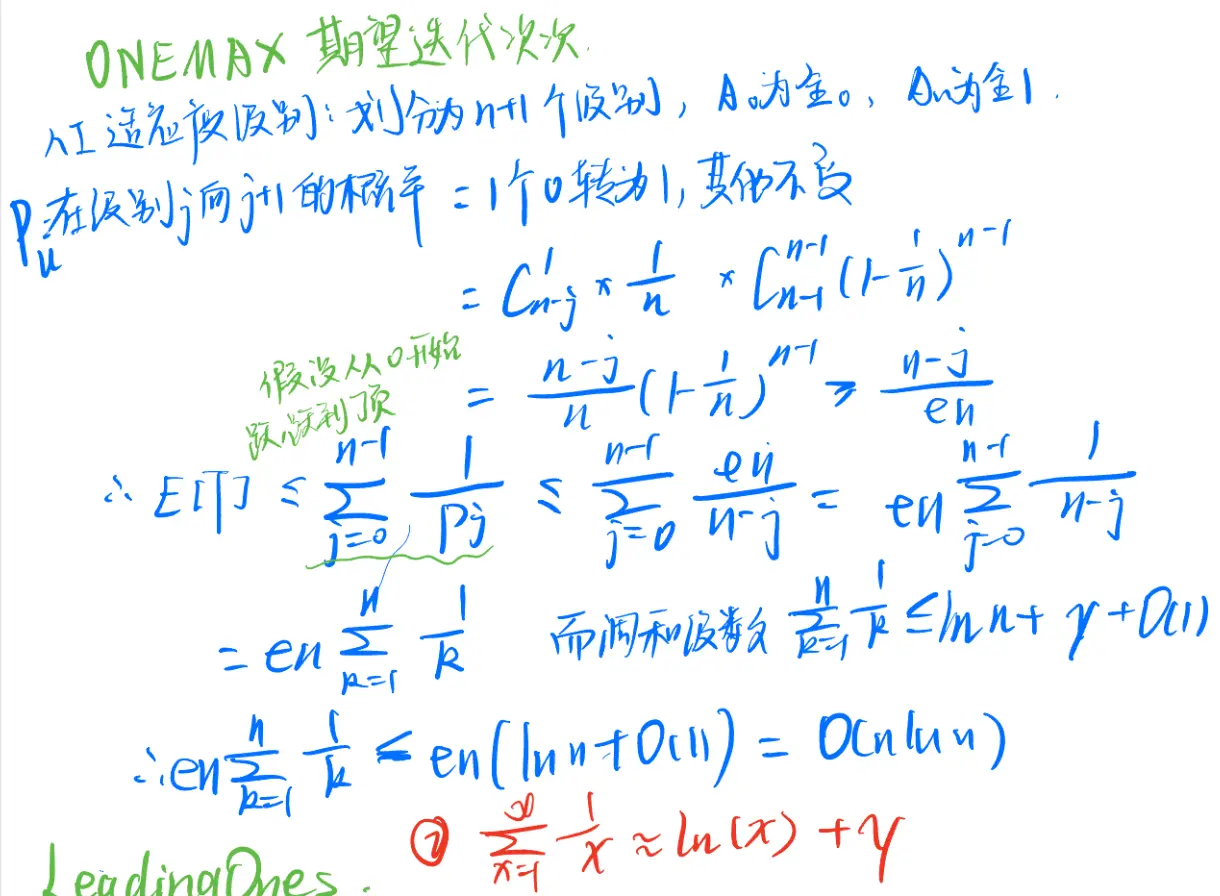 ONEMAX 期望迭代次次.
人工适应度级别: 划分为n+1个级别, A₀为全0, Aₙ为全1.
Pᵤ: 在级别j向j+1的概率 = 1个0转为1, 其他不变
= C¹ₙ₋ⱼ × 1/n × Cⁿ⁻¹ₙ₋₁ (1-1/n)ⁿ⁻¹
= (n-j)/n (1-1/n)ⁿ⁻¹ ≥ (n-j)/(en)
假设从0开始
跃升到顶
∴ E[T] ≤ Σ_{j=0}^{n-1} 1/Pj ≤ Σ_{j=0}^{n-1} en/(n-j) = en Σ_{j=0}^{n-1} 1/(n-j)
= en Σ_{k=1}^{n} 1/k 而调和级数 Σ_{k=1}^{n} 1/k ≤ ln n + γ + O(1)
∴ en Σ_{k=1}^{n} 1/k ≤ en(ln n + O(1)) = O(n ln n)
② Σ_{x=1}^{∞} 1/x ≈ ln(x) + γ
LeadingOnes.